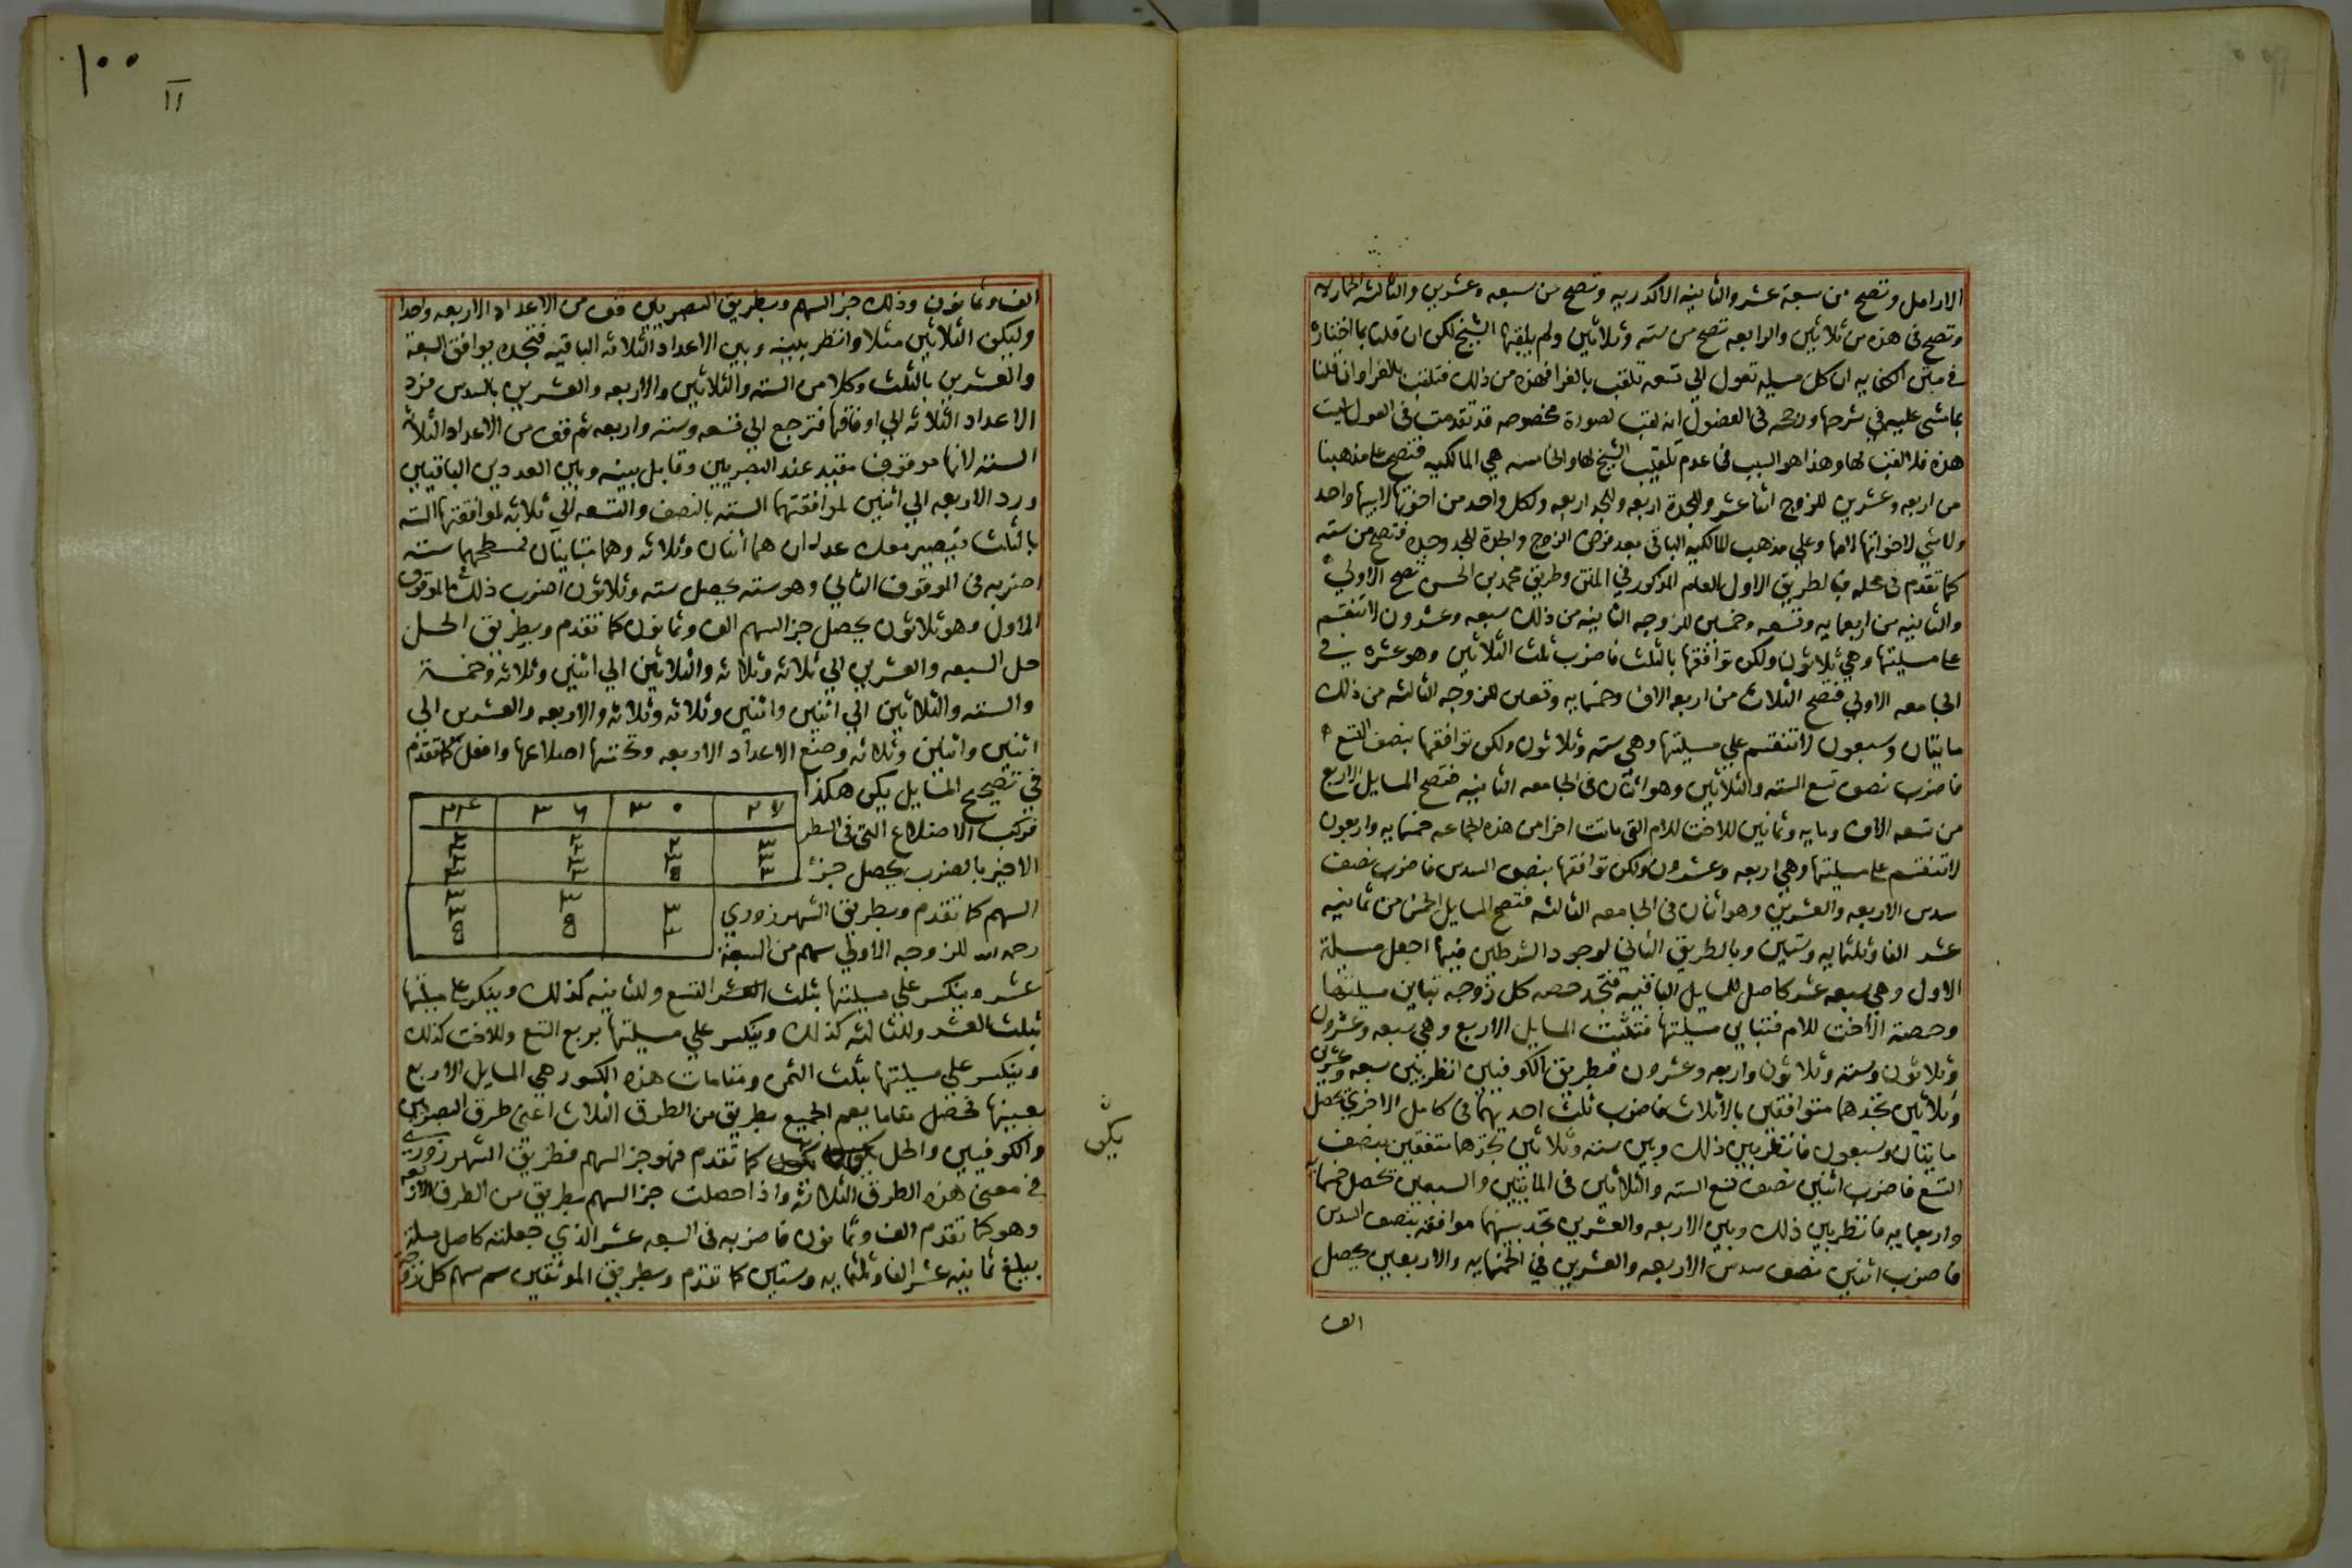 الارامل وتصح من سبعة عشر والثانيه الاكدريه وتصح من سبعه وعشرين والثالثه الحماريه
وتصح فى هذه من ثلاثين والرابعه تصح من سته وثلاثين ولم يلقبها الشيخ لكن ان قلنا بما اختاره
فى متن الكفايه ان كل مسيله تعول الى تسعه تلقب بالغرا فهذه من ذلك فتلقب بالغرا وان قلنا
بما مشى عليه في شرحها وشرحه فى الفصول انه لقب لصورة مخصوصه قد تقدمت فى العول ليست
هذه فلا لقب لها وهذا هو السبب فى عدم تلقيب الشيخ لها والخامسه هي المالكيه فتصح على مذهبنا
من اربعه وعشرين للزوج اثنا عشر وللجدة اربعه وللجد اربعه ولكل واحد من اخوتها لابيها واحد
ولا شي لاخوانها لامها وعلي مذهب المالكيه الباقى بعد فرض الزوج والجدة للجد وحده فتصح من سته
كما تقدم فى محله فبالطريق الاول بالعلم المذكور في المتن وطريق محمد بن الحسن تصح الاولي
والثانيه من اربعمايه وتسعه وخمسين للزوجه الثانيه من ذلك سبعه وعشرون لا تنقسم
على مسيلتها وهي ثلاثون ولكن توافقها بالثلث فاضرب ثلث الثلاثين وهو عشره في
الجامعه الاولي فتصح الثلاث من اربعه الاف وخمسمايه وتسعين للزوجه الثالثه من ذلك
مايتان وسبعون لا تنقسم علي مسيلتها وهي سته وثلاثون ولكن توافقها بنصف التسع
فاضرب نصف تسع السته والثلاثين وهو اثنان فى الجامعه الثانيه فتصح المسايل الاربع
من تسعه الاف ومايه وثمانين للاخت للام التى ماتت اخرا من هذه الجماعه خمسمايه واربعون
لا تنقسم على مسيلتها وهي اربعه وعشرون ولكن توافقها بنصف السدس فاضرب نصف
سدس الاربعه والعشرين وهو اثنان فى الجامعه الثالثه فتصح المسايل الخمس من ثمانيه
عشر الفا وثلثمايه وستين وبالطريق الثاني لوجود الشرطين فيها اجعل مسيلة
الاول وهي سبعه عشر كاصل للمسايل الباقيه فتجد حصه كل زوجه تباين مسيلتها
وحصة الاخت للام فتباين مسيلتها فتثبت المسايل الاربع وهي سبعه وعشرون
وثلاثون وسته وثلاثون واربعه وعشرون فبطريق الكوفيين انظر بين سبعه وعشرين
وثلاثين تجدهما متوافقين بالاثلاث فاضرب ثلث احديهما فى كامل الاخرى يحصل
مايتان وسبعون فانظر بين ذلك وبين سته وثلاثين تجدهما متفقين بنصف
التسع فاضرب اثنين نصف تسع السته والثلاثين فى المايتين والسبعين تحصل خمسمايه
واربعين فانظر بين ذلك وبين الاربعه والعشرين تجد بينهما موافقه بنصف السدس
فاضرب اثنين نصف سدس الاربعه والعشرين في الخمسمايه والاربعين يحصل
الف
١٠٠
11
الف وثمانون وذلك جز السهم وبطريق البصريين قف من الاعداد الاربعه واحدا
وليكن الثلاثين مثلا وانظر بينه وبين الاعداد الثلاثه الباقيه فتجده يوافق السبعة
والعشرين بالثلث وكلا من السته والثلاثين والاربعه والعشرين بالسدس فرد
الاعداد الثلاثه الي اوفاقها فترجع الي تسعه وسته واربعه ثم قف من الاعداد الثلاثه
السته لانها موقوف مقيد عند البصريين وقابل بينه وبين العددين الباقيين
ورد الاربعه الي اثنين لموافقتهما السته بالنصف والتسعه الي ثلاثه لموافقتها السته
بالثلث فيصير معك عددان هما اثنان وثلاثه وهما متباينان فمسطحهما سته
اضربه فى الموقوف الثاني وهو سته يحصل سته وثلاثون اضرب ذلك فى الموقوف
الاول وهو ثلاثون يحصل جز السهم الف وثمانون كما تقدم وبطريق الحل
حل السبعه والعشرين الي ثلاثه وثلاثه وثلاثه والثلاثين الي اثنين وثلاثه وخمسة
والسته والثلاثين الي اثنين واثنين وثلاثه وثلاثه والاربعه والعشرين الي
اثنين واثنين واثنين وثلاثه وضع الاعداد الاربعه وتحتها اضلاعها وافعل كما تقدم
في تصحيح المسايل يكن هكذا
فركب الاضلاع التى فى السطر
الاخير بالضرب يحصل جز
السهم كما تقدم وبطريق الشهرزوري
رحمه الله للزوجه الاولي سهم من السبعة
عشر وينكسر علي مسيلتها بثلث التسع وللثانيه كذلك وينكسر على مسيلتها
بثلث العشر وللثالثه كذلك وينكسر علي مسيلتها بربع التسع وللاخت كذلك
وينكسر علي مسيلتها بثلث الثمن ومقامات هذه الكسور هي المسايل الاربع
بعينها فحصل مقاما يعم الجميع بطريق من الطرق الثلاث اعنى طرق البصريين
والكوفيين والحل يكون كما تقدم فهو جز السهم فطريق الشهرزوري
في معنى هذه الطرق الثلاثه واذا حصلت جز السهم بطريق من الطرق الاربعه
وهو كما تقدم الف وثمانون فاضربه فى السبعه عشر الذي جعلته كاصل مسيلة
يبلغ ثمانيه عشر الفا وثلثمايه وستين كما تقدم وبطريق الموثقين سم سهم كل زوجه
يكن